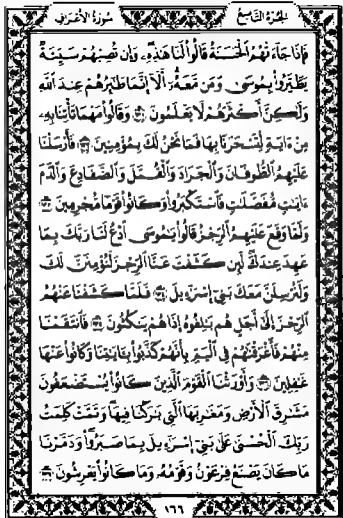 الجزء التاسع
سورة الأعراف
فَإِذَا جَآءَتْهُمُ ٱلْحَسَنَةُ قَالُوا۟ لَنَا هَـٰذِهِۦ وَإِن تُصِبْهُمْ سَيِّئَةٌ
يَطَّيَّرُوا۟ بِمُوسَىٰ وَمَن مَّعَهُۥٓ أَلَآ إِنَّمَا طَـٰٓئِرُهُمْ عِندَ ٱللَّهِ
وَلَـٰكِنَّ أَكْثَرَهُمْ لَا يَعْلَمُونَ وَقَالُوا۟ مَهْمَا تَأْتِنَا بِهِۦ
مِنْ ءَايَةٍ لِّتَسْحَرَنَا بِهَا فَمَا نَحْنُ لَكَ بِمُؤْمِنِينَ فَأَرْسَلْنَا
عَلَيْهِمُ ٱلطُّوفَانَ وَٱلْجَرَادَ وَٱلْقُمَّلَ وَٱلضَّفَادِعَ وَٱلدَّمَ
ءَايَـٰتٍ مُّفَصَّلَـٰتٍ فَٱسْتَكْبَرُوا۟ وَكَانُوا۟ قَوْمًا مُّجْرِمِينَ
وَلَمَّا وَقَعَ عَلَيْهِمُ ٱلرِّجْزُ قَالُوا۟ يَـٰمُوسَى ٱدْعُ لَنَا رَبَّكَ بِمَا
عَهِدَ عِندَكَ لَئِن كَشَفْتَ عَنَّا ٱلرِّجْزَ لَنُؤْمِنَنَّ لَكَ
وَلَنُرْسِلَنَّ مَعَكَ بَنِىٓ إِسْرَٰٓءِيلَ فَلَمَّا كَشَفْنَا عَنْهُمُ
ٱلرِّجْزَ إِلَىٰٓ أَجَلٍ هُم بَـٰلِغُوهُ إِذَا هُمْ يَنكُثُونَ فَٱنتَقَمْنَا
مِنْهُمْ فَأَغْرَقْنَـٰهُمْ فِى ٱلْيَمِّ بِأَنَّهُمْ كَذَّبُوا۟ بِـَٔايَـٰتِنَا وَكَانُوا۟ عَنْهَا
غَـٰفِلِينَ وَأَوْرَثْنَا ٱلْقَوْمَ ٱلَّذِينَ كَانُوا۟ يُسْتَضْعَفُونَ
مَشَـٰرِقَ ٱلْأَرْضِ وَمَغَـٰرِبَهَا ٱلَّتِى بَـٰرَكْنَا فِيهَا وَتَمَّتْ كَلِمَتُ
رَبِّكَ ٱلْحُسْنَىٰ عَلَىٰ بَنِىٓ إِسْرَٰٓءِيلَ بِمَا صَبَرُوا۟ وَدَمَّرْنَا
مَا كَانَ يَصْنَعُ فِرْعَوْنُ وَقَوْمُهُۥ وَمَا كَانُوا۟ يَعْرِشُونَ
١٦٦